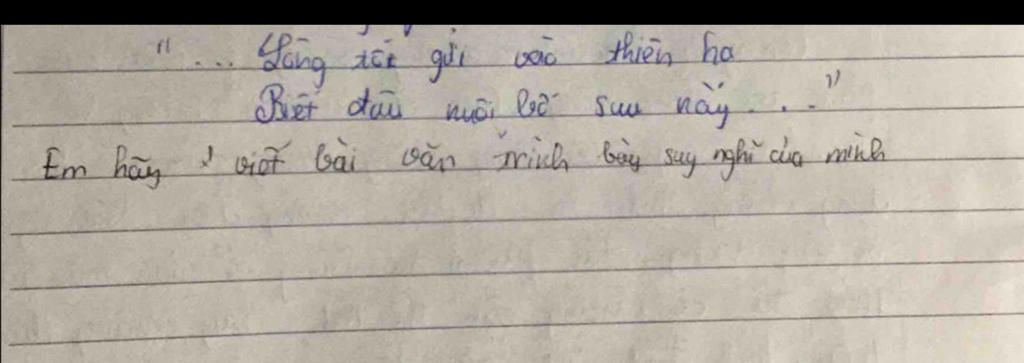 "... Lòng tốt gửi vào thiên hạ
Biết đâu nuôi bố sau này..."
Em hãy viết bài văn trình bày suy nghĩ của mình